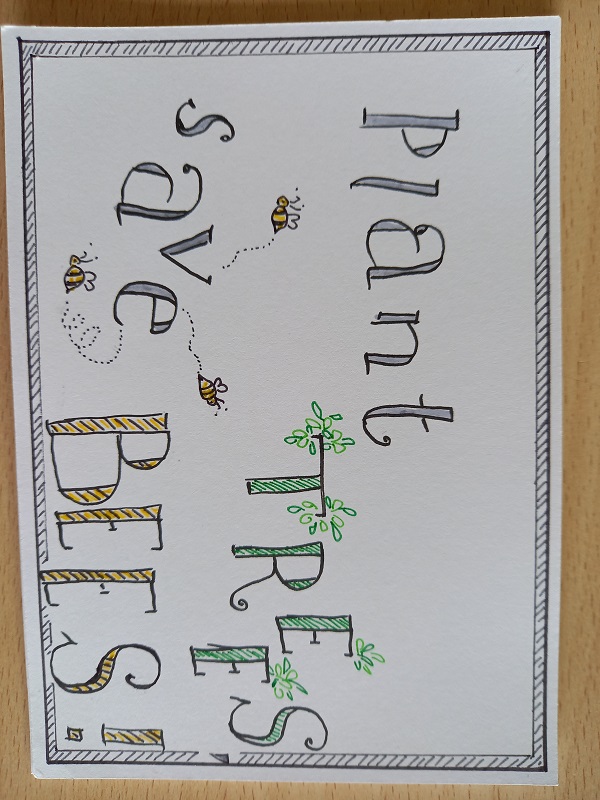 Plant
TREES,
save
BEES!